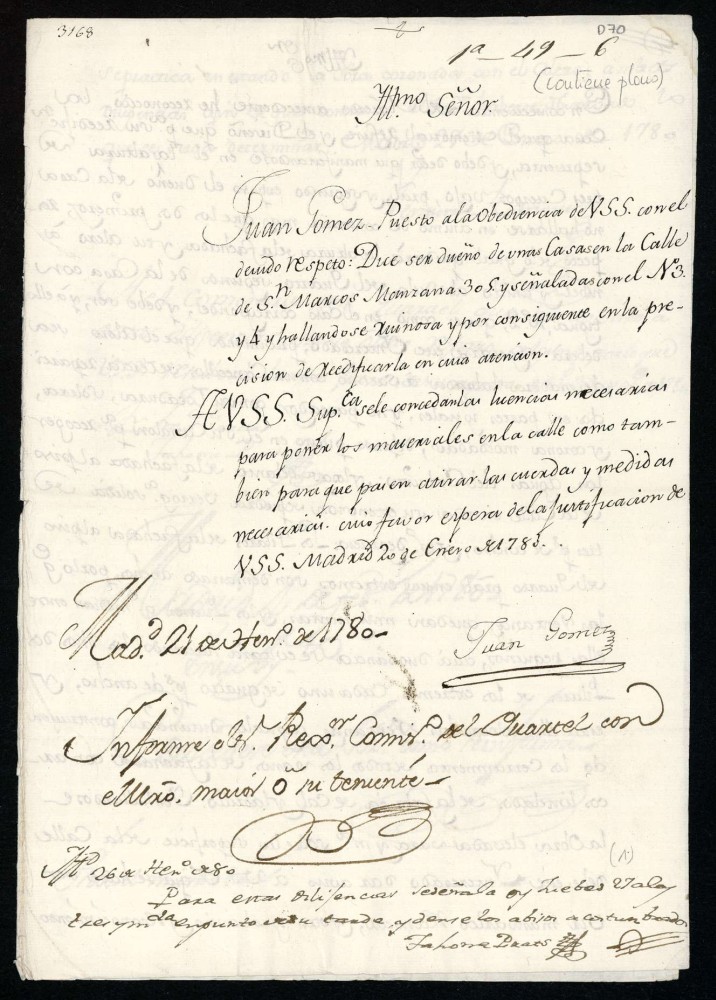 3168
D70
1ª - 49 - 6
(contiene plano)
Yllmo Señor.
Juan Gomez Puesto ala Obediencia de VSS. con el
devido respeto: Dice ser dueño de unas Casas en la Calle
de Sn. Marcos Manzana 305 y señaladas con el Nº. 3.
y 4 y hallandose Ruinosa y por consiguiente en la pre-
cision de Reedificarla en cuia atencion.
A VSS. Supca. sele concedan las licencias necesarias
para poner los materiales en la calle como tam-
bien para que pasen atirar las cuerdas y medidas
necesarias. cuio favor espera de la justificacion de
VSS. Madrid 20 de Enero de 1780.
Juan Gomez
Madd. 21 de Heno. de 1780-
Informe el Sr. Rexor. Comisº. del Quartel con
el Mrô. maior ô su teniente-
(1.)
Md. 26 de Heno. de 80
Para estas dilijencias se señala oy Juebes a las
tres y mda. en punto de su tarde, y dense los abisos acostumbrados